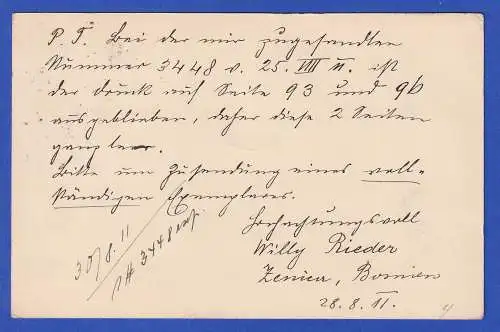 P. T. Bei der mir zugesandten
Nummer 3448 v. 25. VIII 11. ist
der Druck auf Seite 93 und 96
ausgeblieben, daher diese 2 Seiten
ganz leer.
Bitte um Zusendung eines voll-
ständigen Exemplares.
Hochachtungsvoll
Willy Rieder
Zenica, Bosnien
28. 8. 11.
30/8. 11
3448